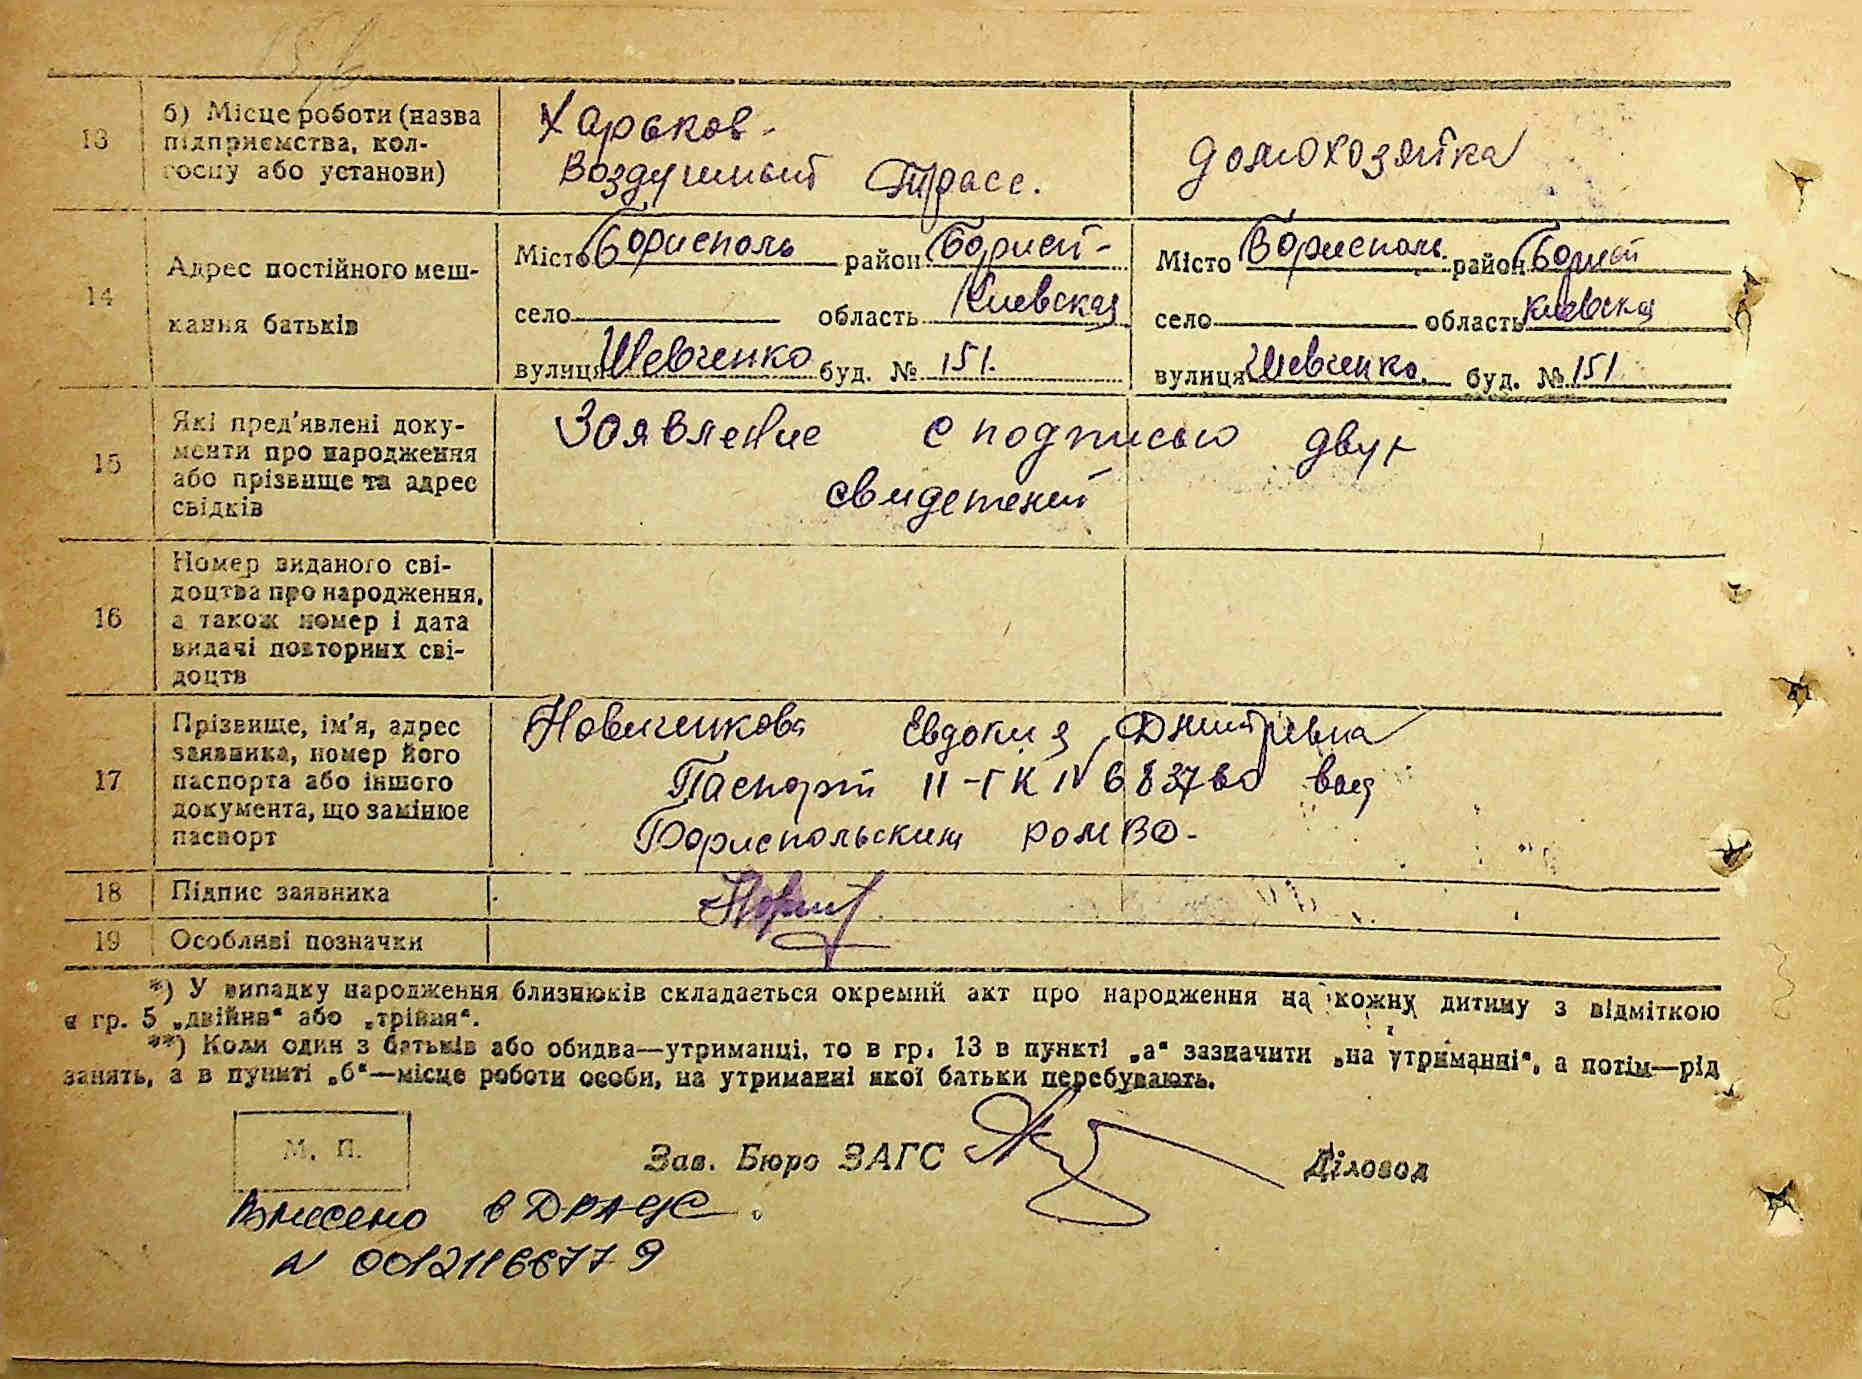 13
б) Місце роботи (назва
підприємства, кол-
госпу або установи)
Харьков.
Воздушный Трасс.
домохозяйка
14
Адрес постійного меш-
кання батьків
Місто Борисполь район Борисп-
село область Киевская
вулиця Шевченко буд. № 151.
Місто Борисполь район Борисп
село область Киевска
вулиця Шевченко. буд. № 151
15
Які пред'явлені доку-
менти про народження
або прізвище та адрес
свідків
Заявление с подписью двух
свидетелей
16
Номер виданого сві-
доцтва про народження,
а також номер і дата
видачі повторних сві-
доцтв
17
Прізвище, ім'я, адрес
заявника, номер його
паспорта або іншого
документа, що замінює
паспорт
Новиченкова Евдокия Дмитревна
Паспорт II-ГК N 683760 выд
Бориспольским РОМВД-
18
Підпис заявника
19
Особливі позначки
*) У випадку народження близнюків складається окремий акт про народження на кожну дитину з відміткою
в гр. 5 „двійня“ або „трійня“.
**) Коли один з батьків або обидва—утриманці, то в гр. 13 в пункті „а“ зазначити „на утриманні“, а потім—рід
занять, а в пункті „б“—місце роботи особи, на утриманні якої батьки перебувають.
М. П.
Зав. Бюро ЗАГС
Діловод
Внесено в ДРАЦС.
N 00121166779